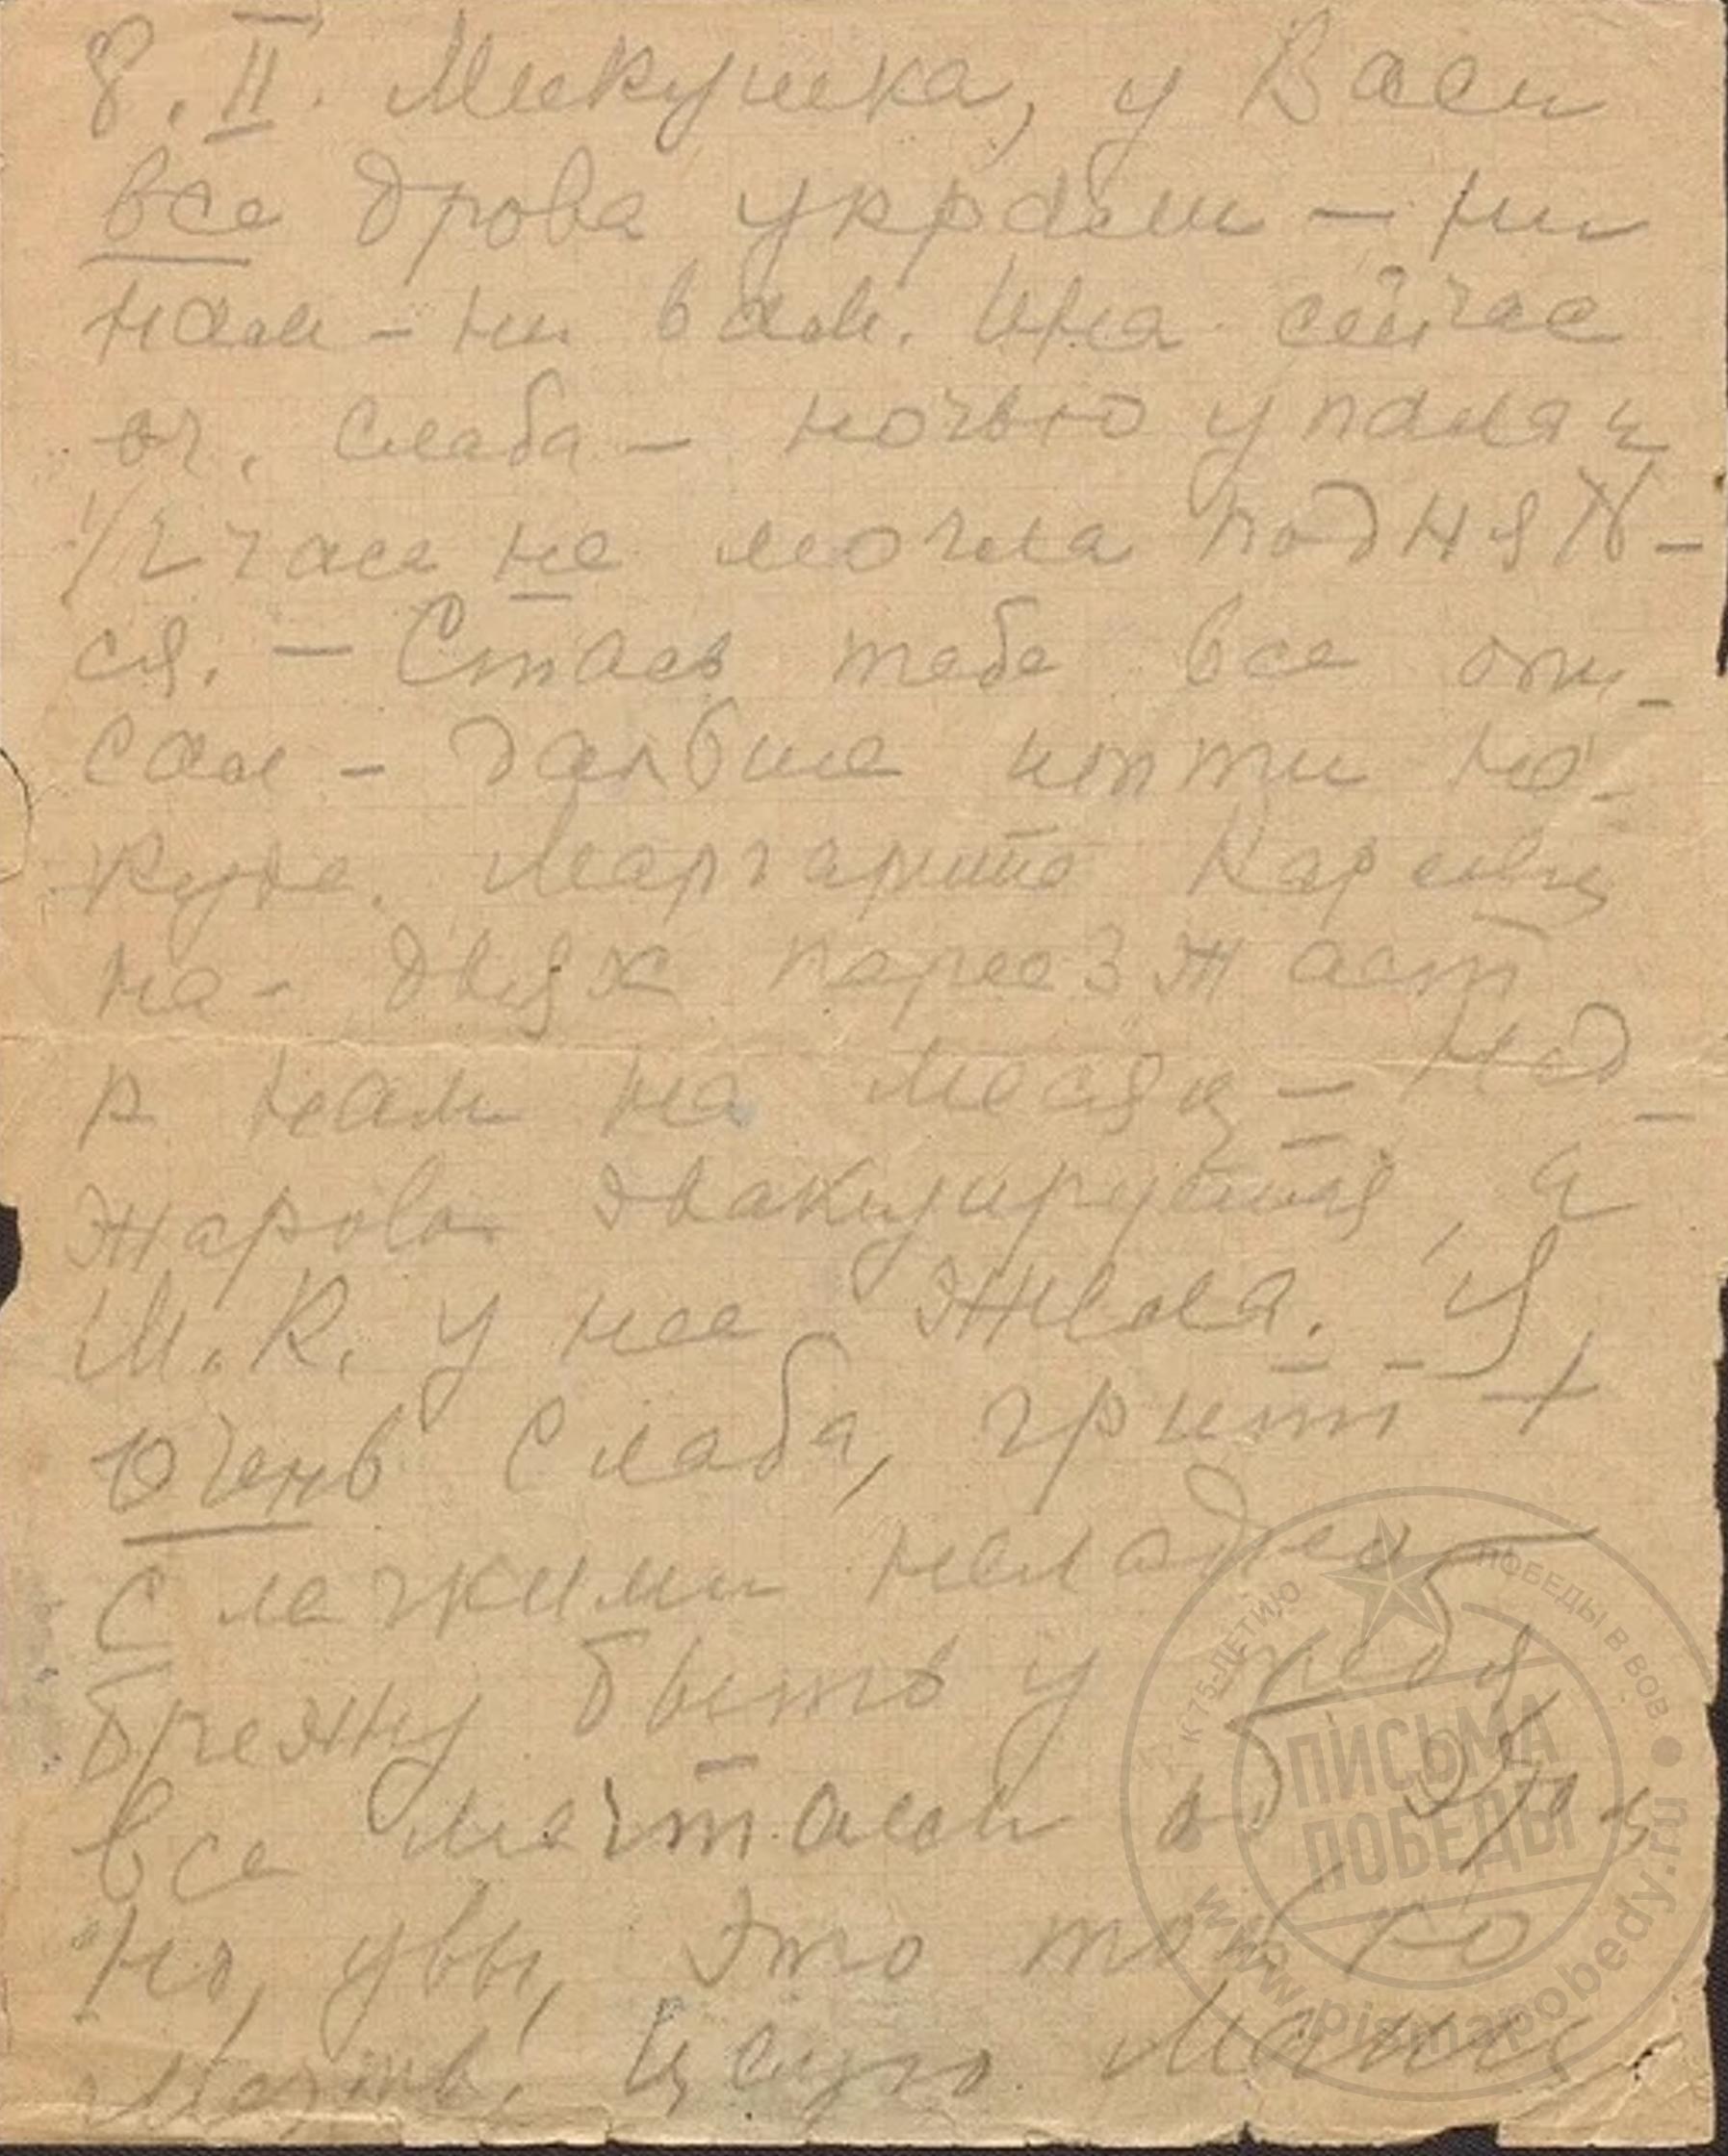 8. II. Микушка, у Васи
все дрова украли – ни
нам – ни вам. Ина сейчас
оч. слаба – ночью упала и
1/2 часа не могла поднять-
ся. – Стась тебе все опи-
сал – дальше итти не-
куда. Маргарита Карловна
на-днях переезжает
к нам на месяц – Над-
жарова эвакуируется, а
М.К. у нее жила. Я
очень слаба, грипп +
с легкими неладно
Брежу быть у тебя,
все мечтаем об этом
Но, увы, это только
мечты. Целую Мамы
К 75-ЛЕТИЮ ПОБЕДЫ В ВОВ.
ПИСЬМА
ПОБЕДЫ
www.pismapobedy.ru